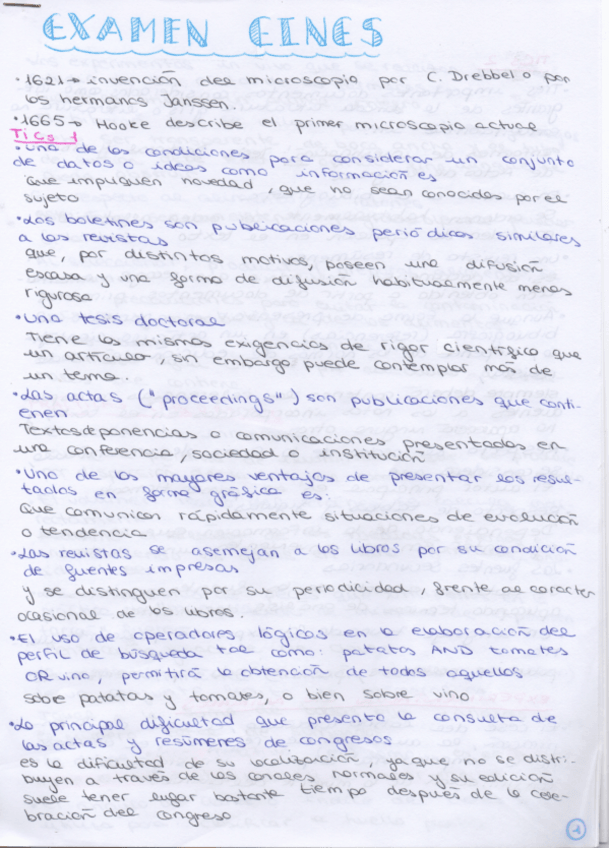 EXAMEN EINES
·1621→ invención del microscopio por C. Drebbel o por
los hermanos Janssen.
·1665→ Hooke describe el primer microscopio actual
TICs 1
·Una de las condiciones para considerar un conjunto
de datos o ideas como información es
Que impliquen novedad, que no sean conocidas por el
sujeto
·Los boletines son publicaciones periódicas similares
a las revistas
que, por distintos motivos, poseen una difusión
escasa y una forma de difusión habitualmente menos
rigurosa
·Una tesis doctoral
Tiene las mismas exigencias de rigor científico que
un artículo, sin embargo puede contemplar más de
un tema
·Las actas ("proceedings") son publicaciones que conti-
enen
Textos de ponencias o comunicaciones presentadas en
una conferencia, sociedad o institución
·Una de las mayores ventajas de presentar los resul-
tados en forma gráfica es:
Que comunican rápidamente situaciones de evolución
o tendencia
·Las revistas se asemejan a los libros por su condición
de fuentes impresas
y se distinguen por su periodicidad, frente al carácter
ocasional de los libros.
·El uso de operadores lógicos en la elaboración del
perfil de búsqueda tal como: patatas AND tomates
OR vino, permitirá la obtención de todos aquellos
sobe patatas y tomates, o bien sobre vino
·La principal dificultad que presenta la consulta de
las actas y resúmenes de congresos
es la dificultad de su localización, ya que no se distri-
buyen a través de los canales normales y su edición
suele tener lugar bastante tiempo después de la cele-
bración del congreso
1